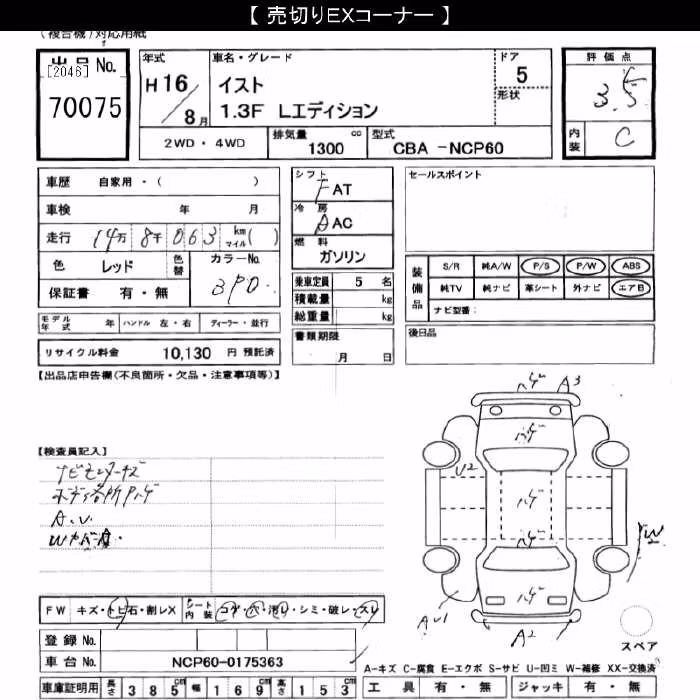 【 売切りEXコーナー 】
(複合機)対応用紙
出品 No.
[2046]
70075
年式
H 16/8月
車名・グレード
イスト
1.3F Lエディション
ドア
5
形状
評価点
3.5
内装
C
2WD・4WD
排気量
1300 cc
型式
CBA -NCP60
車歴 自家用・( )
車検 年 月
走行 14万 8千 063 km マイル( )
色 レッド
色替
カラーNo.
3P0
保証書 有・無
シフト
FAT
冷房
AAC
燃料
ガソリン
乗車定員 5 名
積載量 kg
総重量 kg
書類期限
月 日
セールスポイント
装備品
S/R 純A/W P/S P/W ABS
純TV 純ナビ 革シート 外ナビ エアB
ナビ型番:
後日品
モデル年式 年 ハンドル 左・右 ディーラー・並行
リサイクル料金 10,130 円 預託済
【出品店申告欄(不良箇所・欠品・注意事項等)】
【検査員記入】
A.U.
ハゲ A3
ハゲ
U2
ハゲ
ハゲ
W2
ハゲ
AU1
A2
スペア
FW キズ・トビ石・割レX
シート内装 コゲ・穴・汚レ・シミ・破レ・スレ
登録 No.
車台 No. NCP60-0175363
車庫証明用 長さ 385cm 幅 169cm 高さ 153cm
A-キズ C-腐食 E-エクボ S-サビ U-凹ミ W-補修 XX-交換済
工具 有・無 ジャッキ 有・無